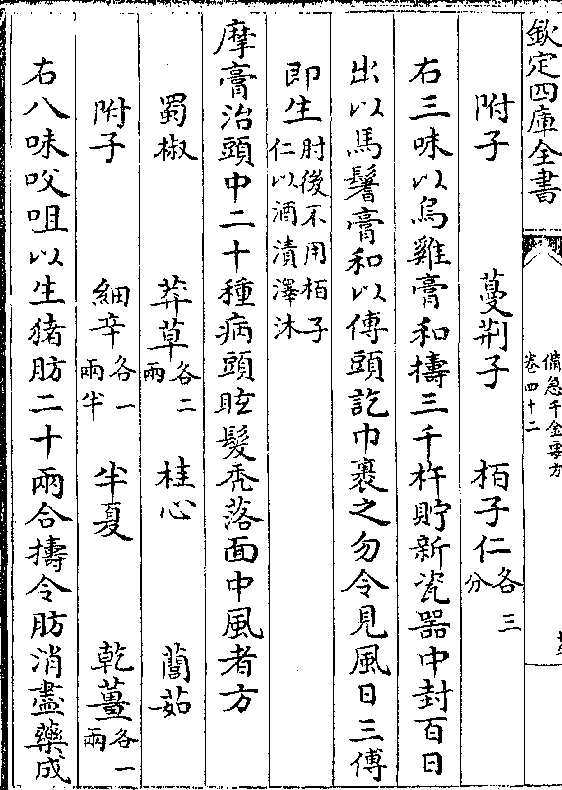 欽定四庫全書
備急千金要方
卷四十二
附子　蔓荆子　栢子仁各三分
右三味以烏雞膏和擣三千杵貯新瓷器中封百日
出以馬鬐膏和以傅頭訖巾裹之勿令見風日三傅
即生肘後不用栢子仁以酒漬澤沐
摩膏治頭中二十種病頭眩髮禿落面中風者方
蜀椒　莽草各二兩　桂心　䕡茹
附子　細辛各一兩半　半夏　乾薑各一兩
右八味㕮咀以生猪肪二十兩合擣令肪消盡藥成